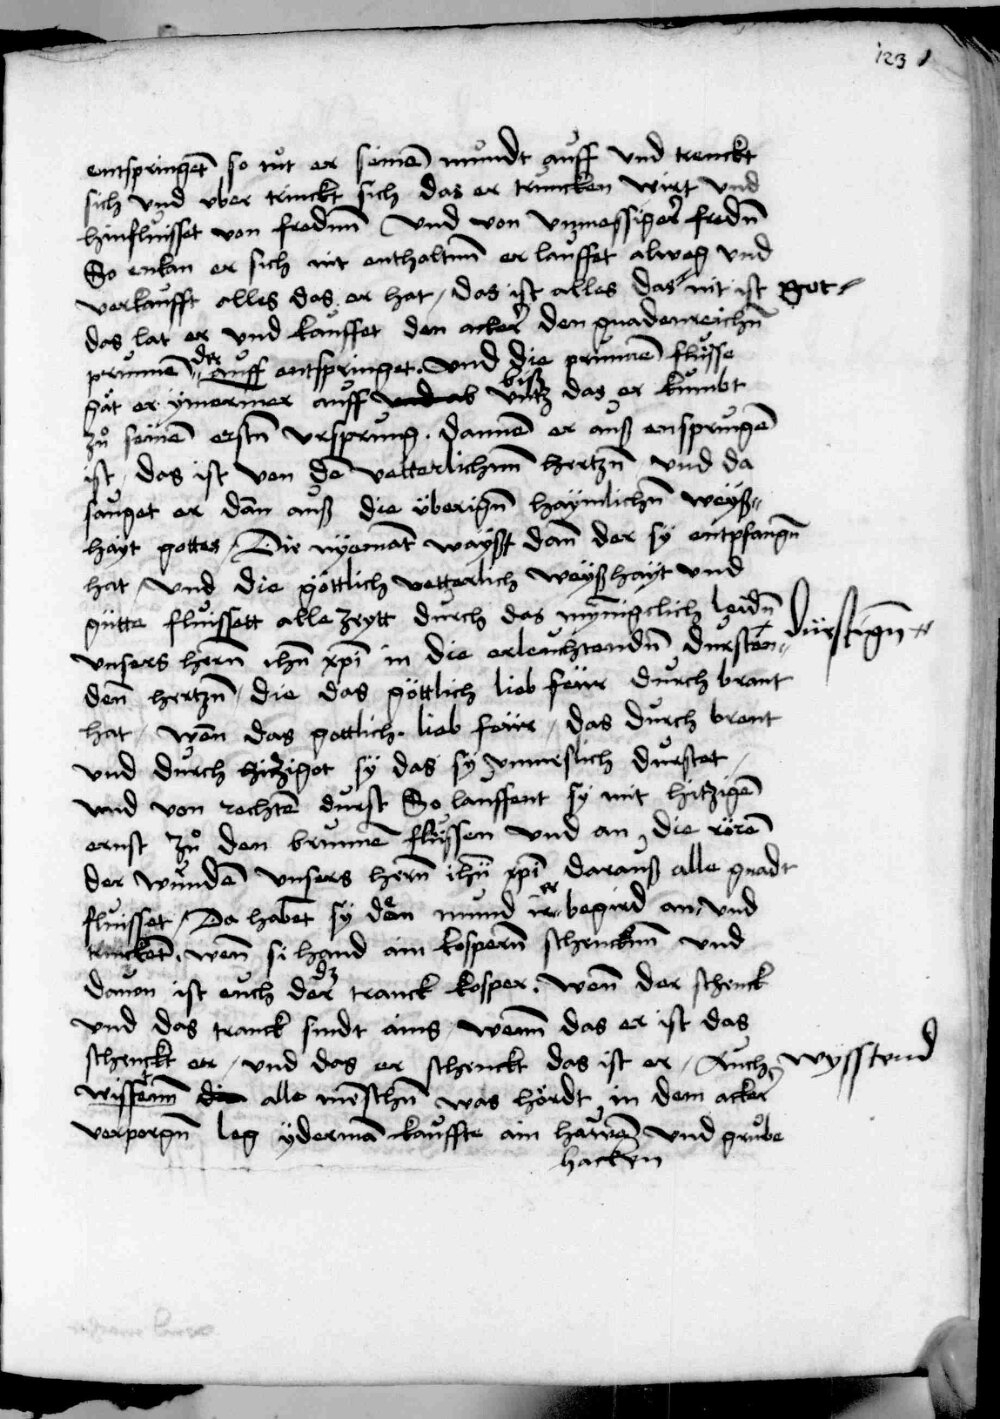 123
entspringet̄ so tůt er seinē mundt auff vnd trenckt
sich vnd vber trinckt sich das er truncken wirt vnd
hinflüsset von fredenn Vnd von vnmessiger fredn̄
So enkan er sich nit enthaltenn er lauffet alweg vnd
verkaufft alles das er hat / das ist alles das nit ist got /
das lat er vnd kauffet den acker den gnadenreichn̄
prunnen der auff entspringet. Vnd die prunnē flüsse
gät er ymermer auff vnd ab vntz biß das er kumbt
zů seinē erstn̄ vrsprung. dannē er auß ensprungē
ist / das ist von dē vetterlichenn hertzn̄ vnd da
sauget er dan̄ auß die überign̄ haÿmlichn̄ weÿß„
haÿt gottes / Die nÿemāt waÿßt dan̄ der sÿ entpfangn̄
hat / Vnd die göttlich vetterlich weÿßhaÿt vnd
gütte flüissett alle zeytt durch das mÿnnigclich leidn̄
vnsers hern̄ ihū xp̄i in die erleuchtendn̄ dursten„ dürstign̄
den̄ hertzn̄ / die das göttlich lieb feür durch brant
hat / Wen̄ das gottlich lieb feür / das durch brent
vnd durch hitziget sÿ das sÿ vnmeslich durstet /
vnd von rechtē durst So lauffent sÿ mit hitzigē
ernst zů den brunnē flüssen vnd an die rörē
der wundē vnsers hern̄ ihū xp̄i darauß alle gnadt
fluisset / Da habet̄ sÿ den mund irer begird an vnd
trincket̄. wen̄ si hand ain kospern̄ schenckenn vnd
dauon ist euch der dz tranck kosper. Wen̄ der schenck
vnd das tranck sindt ains / wenn das er ist das
schenckt er / vnd das er schenckt das ist er / Auch wysstend
wissetenn die alle menschn̄ was hördt in dem acker
verporgn̄ leg ÿdermā kauffte ain hawē vnd grube
hacken